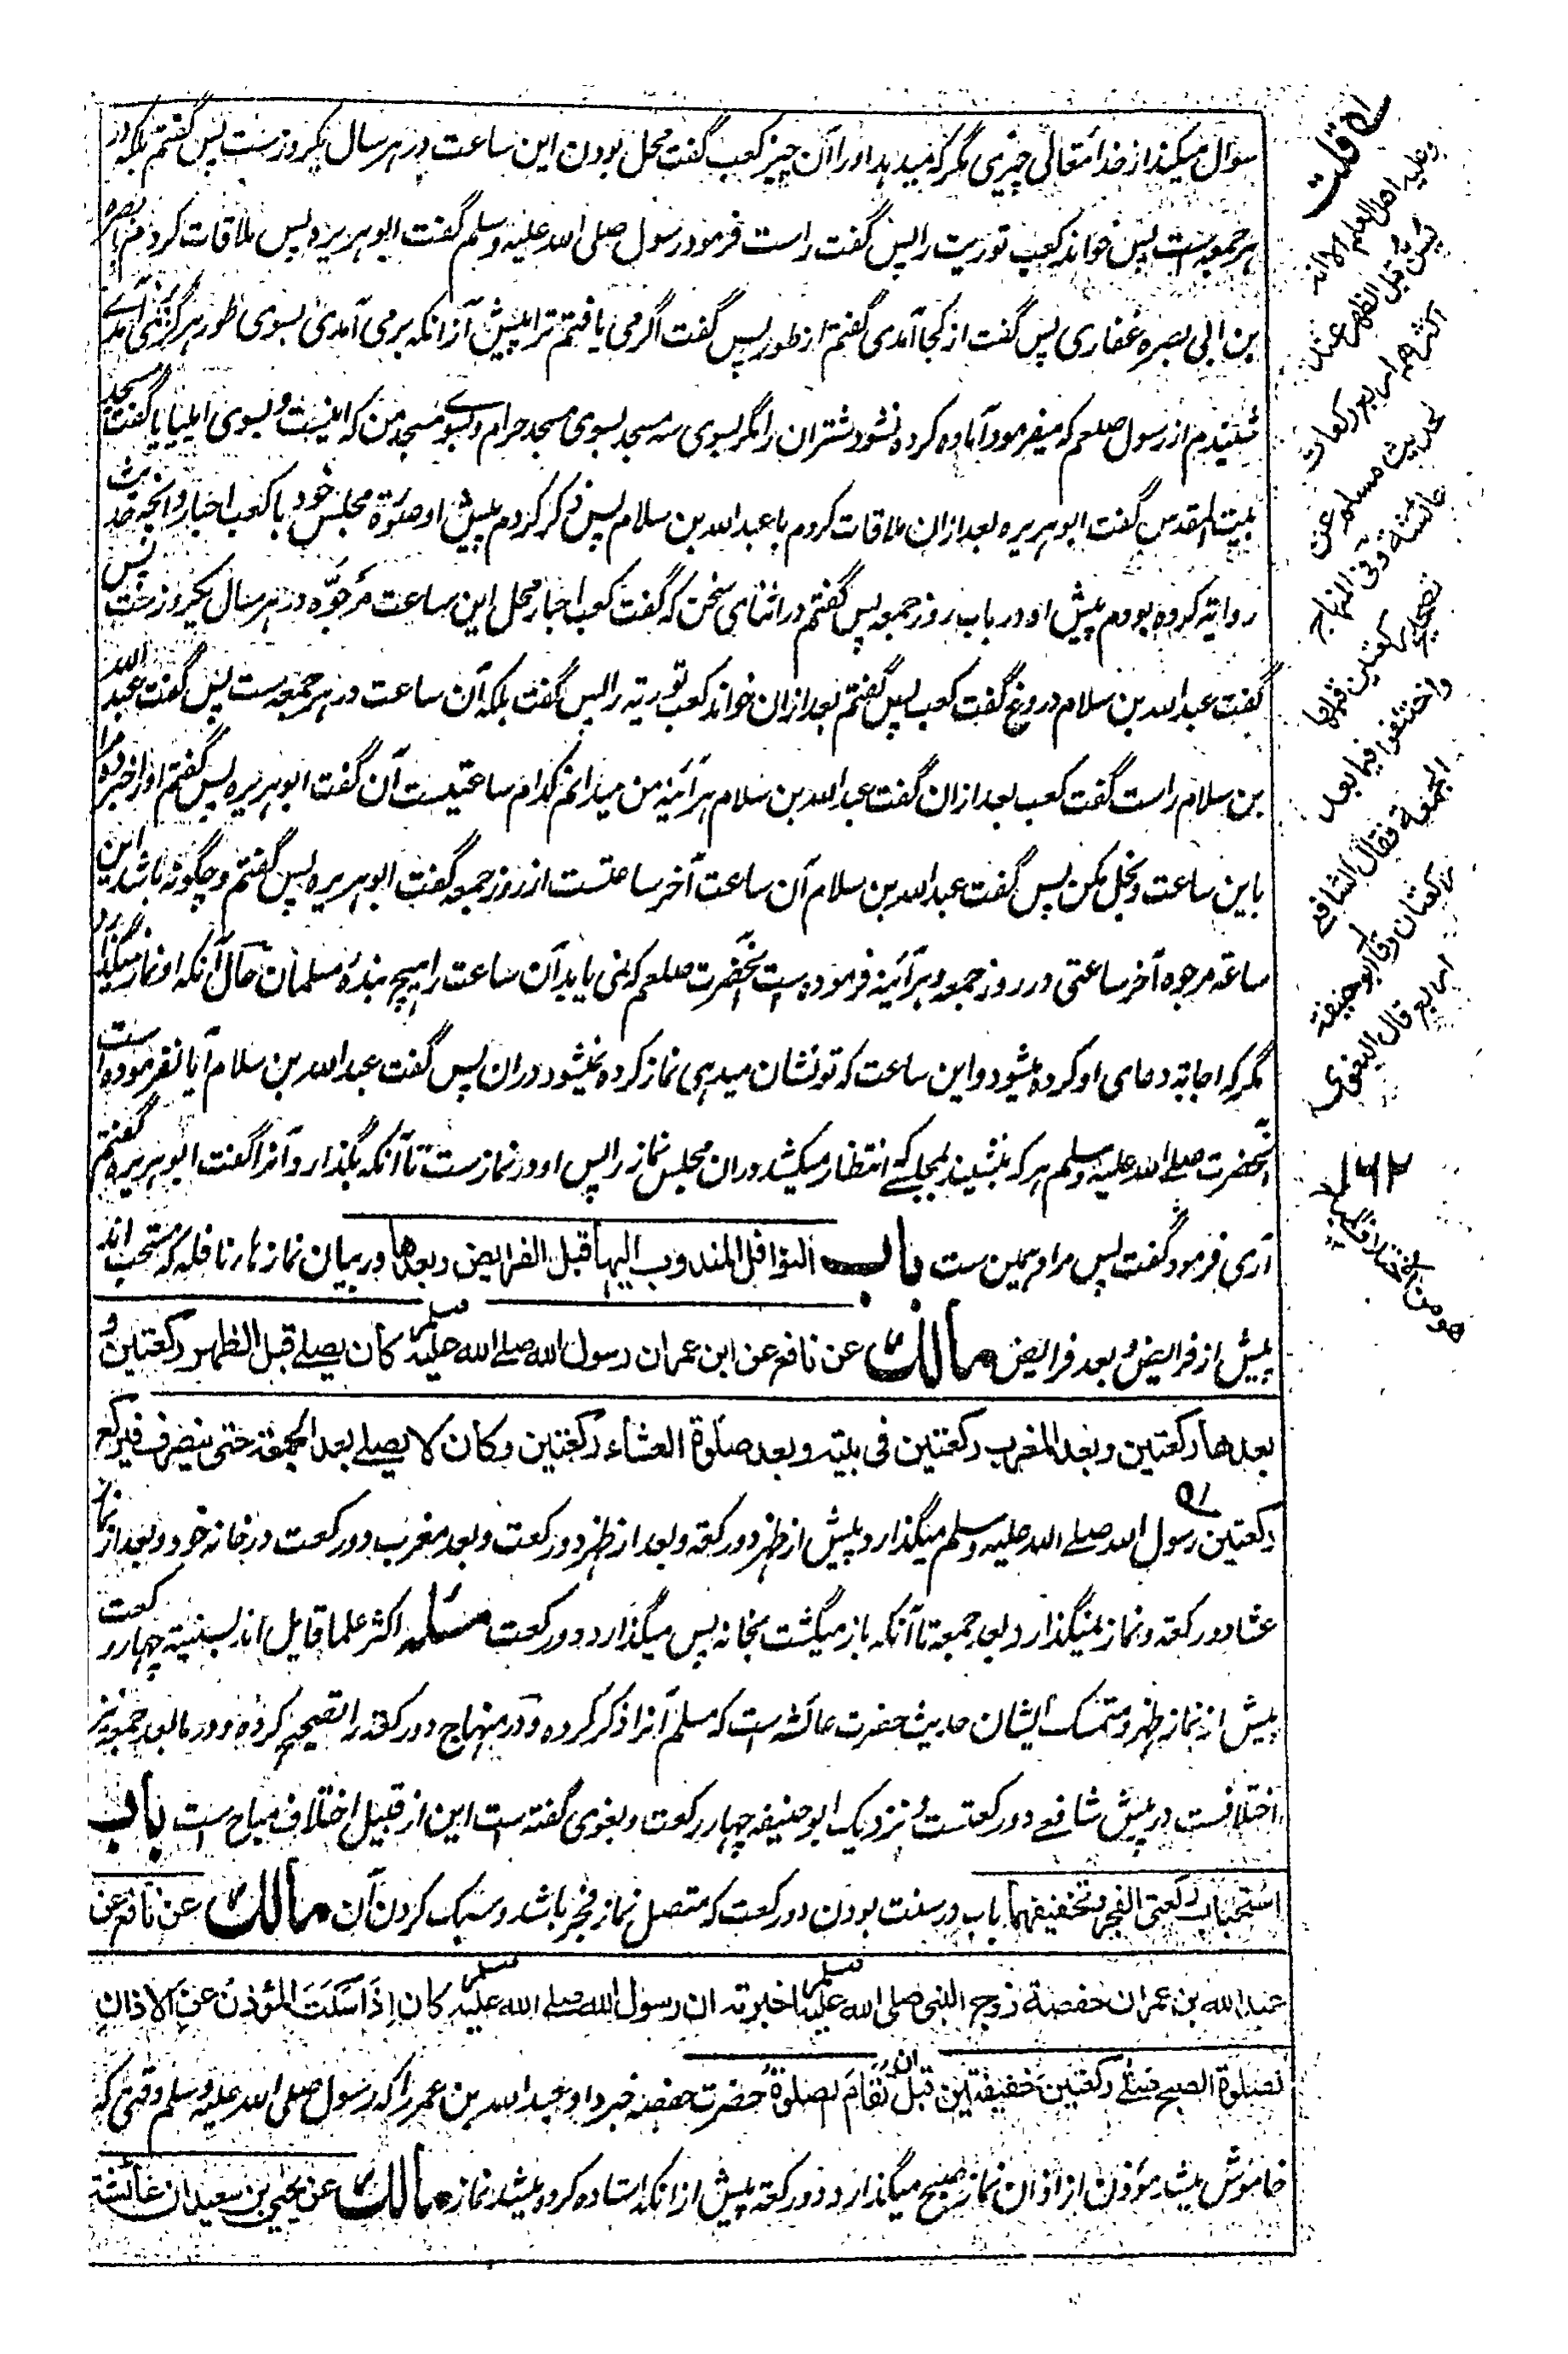 سوال میکند از خدا تعالی چیزی مگر که میدهد او را آن چیز کعب گفت محل بودن این ساعت در هر سال یکروز ست پس گفتم بلکه در
هر جمعه ست پس خواند کعب توریت را پس گفت راست فرمود رسول صلی الله علیه وسلم گفت ابو هریره پس ملاقات کردم بصره
بن ابی بصره غفاری پس گفت از کجا آمدی گفتم از طور پس گفت اگر می یافتم ترا پیش از انکه برمی آمدی بسوی طور هرگز نمی آمدی
شنیدم از رسول صلعم که میفرمود آماده کرده نشود شتران را مگر بسوی سه مسجد بسوی مسجد حرام و بسوی مسجد من که اینست و بسوی ایلیا یا گفت مسجد
بیت المقدس گفت ابو هریره بعد ازان ملاقات کردم با عبد الله بن سلام پس ذکر کردم پیش او صورة مجلس خود با کعب احبار و آنچه حدیث
روایة کرده بودم پیش او در باب روز جمعه پس گفتم در اثنای سخن که گفت کعب احبار محل این ساعت مرجوّه در هر سال یکروز ست پس
گفت عبد الله بن سلام دروغ گفت کعب پس گفتم بعد ازان خواند کعب توریة را پس گفت بلکه آن ساعت در هر جمعه ست پس گفت عبد الله
بن سلام راست گفت کعب بعد ازان گفت عبد الله بن سلام هر آئینه من میدانم کدام ساعتیست آن گفت ابو هریره پس گفتم او را خبر ده مرا
باین ساعت و بخل مکن پس گفت عبد الله بن سلام آن ساعت آخر ساعتست از روز جمعه گفت ابو هریره پس گفتم و چگونه باشد این
ساعة مرجوه آخر ساعتی در روز جمعه و هر آئینه فرموده ست آنحضرت صلعم که نمی یابد آن ساعت را هیچ بندهٔ مسلمان حال آنکه او نماز میگذارد
مگر که اجابة دعای او کرده میشود و این ساعت که تو نشان میدهی نماز کرده نمیشود دران پس گفت عبد الله بن سلام آیا نفرموده است
آنحضرت صلے الله علیه وسلم هر که بنشیند بجایکے انتظار میکشد دران مجلس نماز را پس او در نماز ست تا آنکه بگذارد آنرا گفت ابو هریره گفتم
آری فرمود گفت پس مراد همین ست باب النوافل المندوب الیها قبل الفرایض وبعدها در بیان نمازهاء نافله که مستحب اند
پیش از فرایض و بعد فرایض مالک عن نافع عن ابن عمر ان رسول الله صلے الله علیه وسلم کان یصلے قبل الظهر رکعتین و
بعدها رکعتین وبعد المغرب رکعتین فی بیته وبعد صلوة العشاء رکعتین وکان لا یصلے بعد الجمعة حتی ینصرف فیرکع
رکعتین رسول الله صلے الله علیه وسلم میگذارد پیش از ظهر دو رکعة و بعد از ظهر دو رکعت و بعد مغرب دو رکعت در خانه خود و بعد از نماز
عشا دو رکعة و نماز نمیگذارد بعد جمعة تا آنکه باز میگشت بخانه پس میگذارد دو رکعت مسئله اکثر علما قایل اند بسنیة چهار رکعت
پیش از نماز ظهر و متمسک ایشان حدیث حضرت عائشه است که مسلم آنرا ذکر کرده و در منهاج دو رکعة را تصحیح کرده و در ما بعد جمعه نیز
اختلافست در پیش شافعے دو رکعتست و نزدیک ابو حنیفه چهار رکعت و بغوی گفته ست این از قبیل اختلاف مباح ست باب
استحباب رکعتی الفجر وتخفیفهما باب در سنت بودن دو رکعت که متصل نماز فجر باشد و سبک کردن آن مالک عن نافع عن
عبد الله بن عمر ان حفصة زوج النبی صلی الله علیه وسلم اخبرته ان رسول الله صلے الله علیه وسلم کان اِذَا سَکَتَ المؤذنُ عن الاذان
لصلوة الصبح صلے رکعتین خفیفتین قبل ان تُقَامَ الصلوةُ حضرت حفصه خبر داد عبد الله بن عمر را که رسول صلی الله علیه وسلم وقتی که
خاموش میشد مؤذن از اذان نماز صبح میگذارد دو رکعة پیش از انکه استاده کرده میشد نماز مالک عن یحیی بن سعید ان عائشة
قلت
وعلیه اهل العلم الا انه
یسن قبل الظهر عند
اکثرهم اربع رکعات
لحدیث مسلم عن
عائشة وفی المنهاج
تصحیح رکعتین قبلها
واختلفوا فیما بعد
الجمعة فقال الشافعے
رکعتان وقال ابو حنیفة
اربع قال البغوی
۱۶۲
هو من الاختلاف المباح